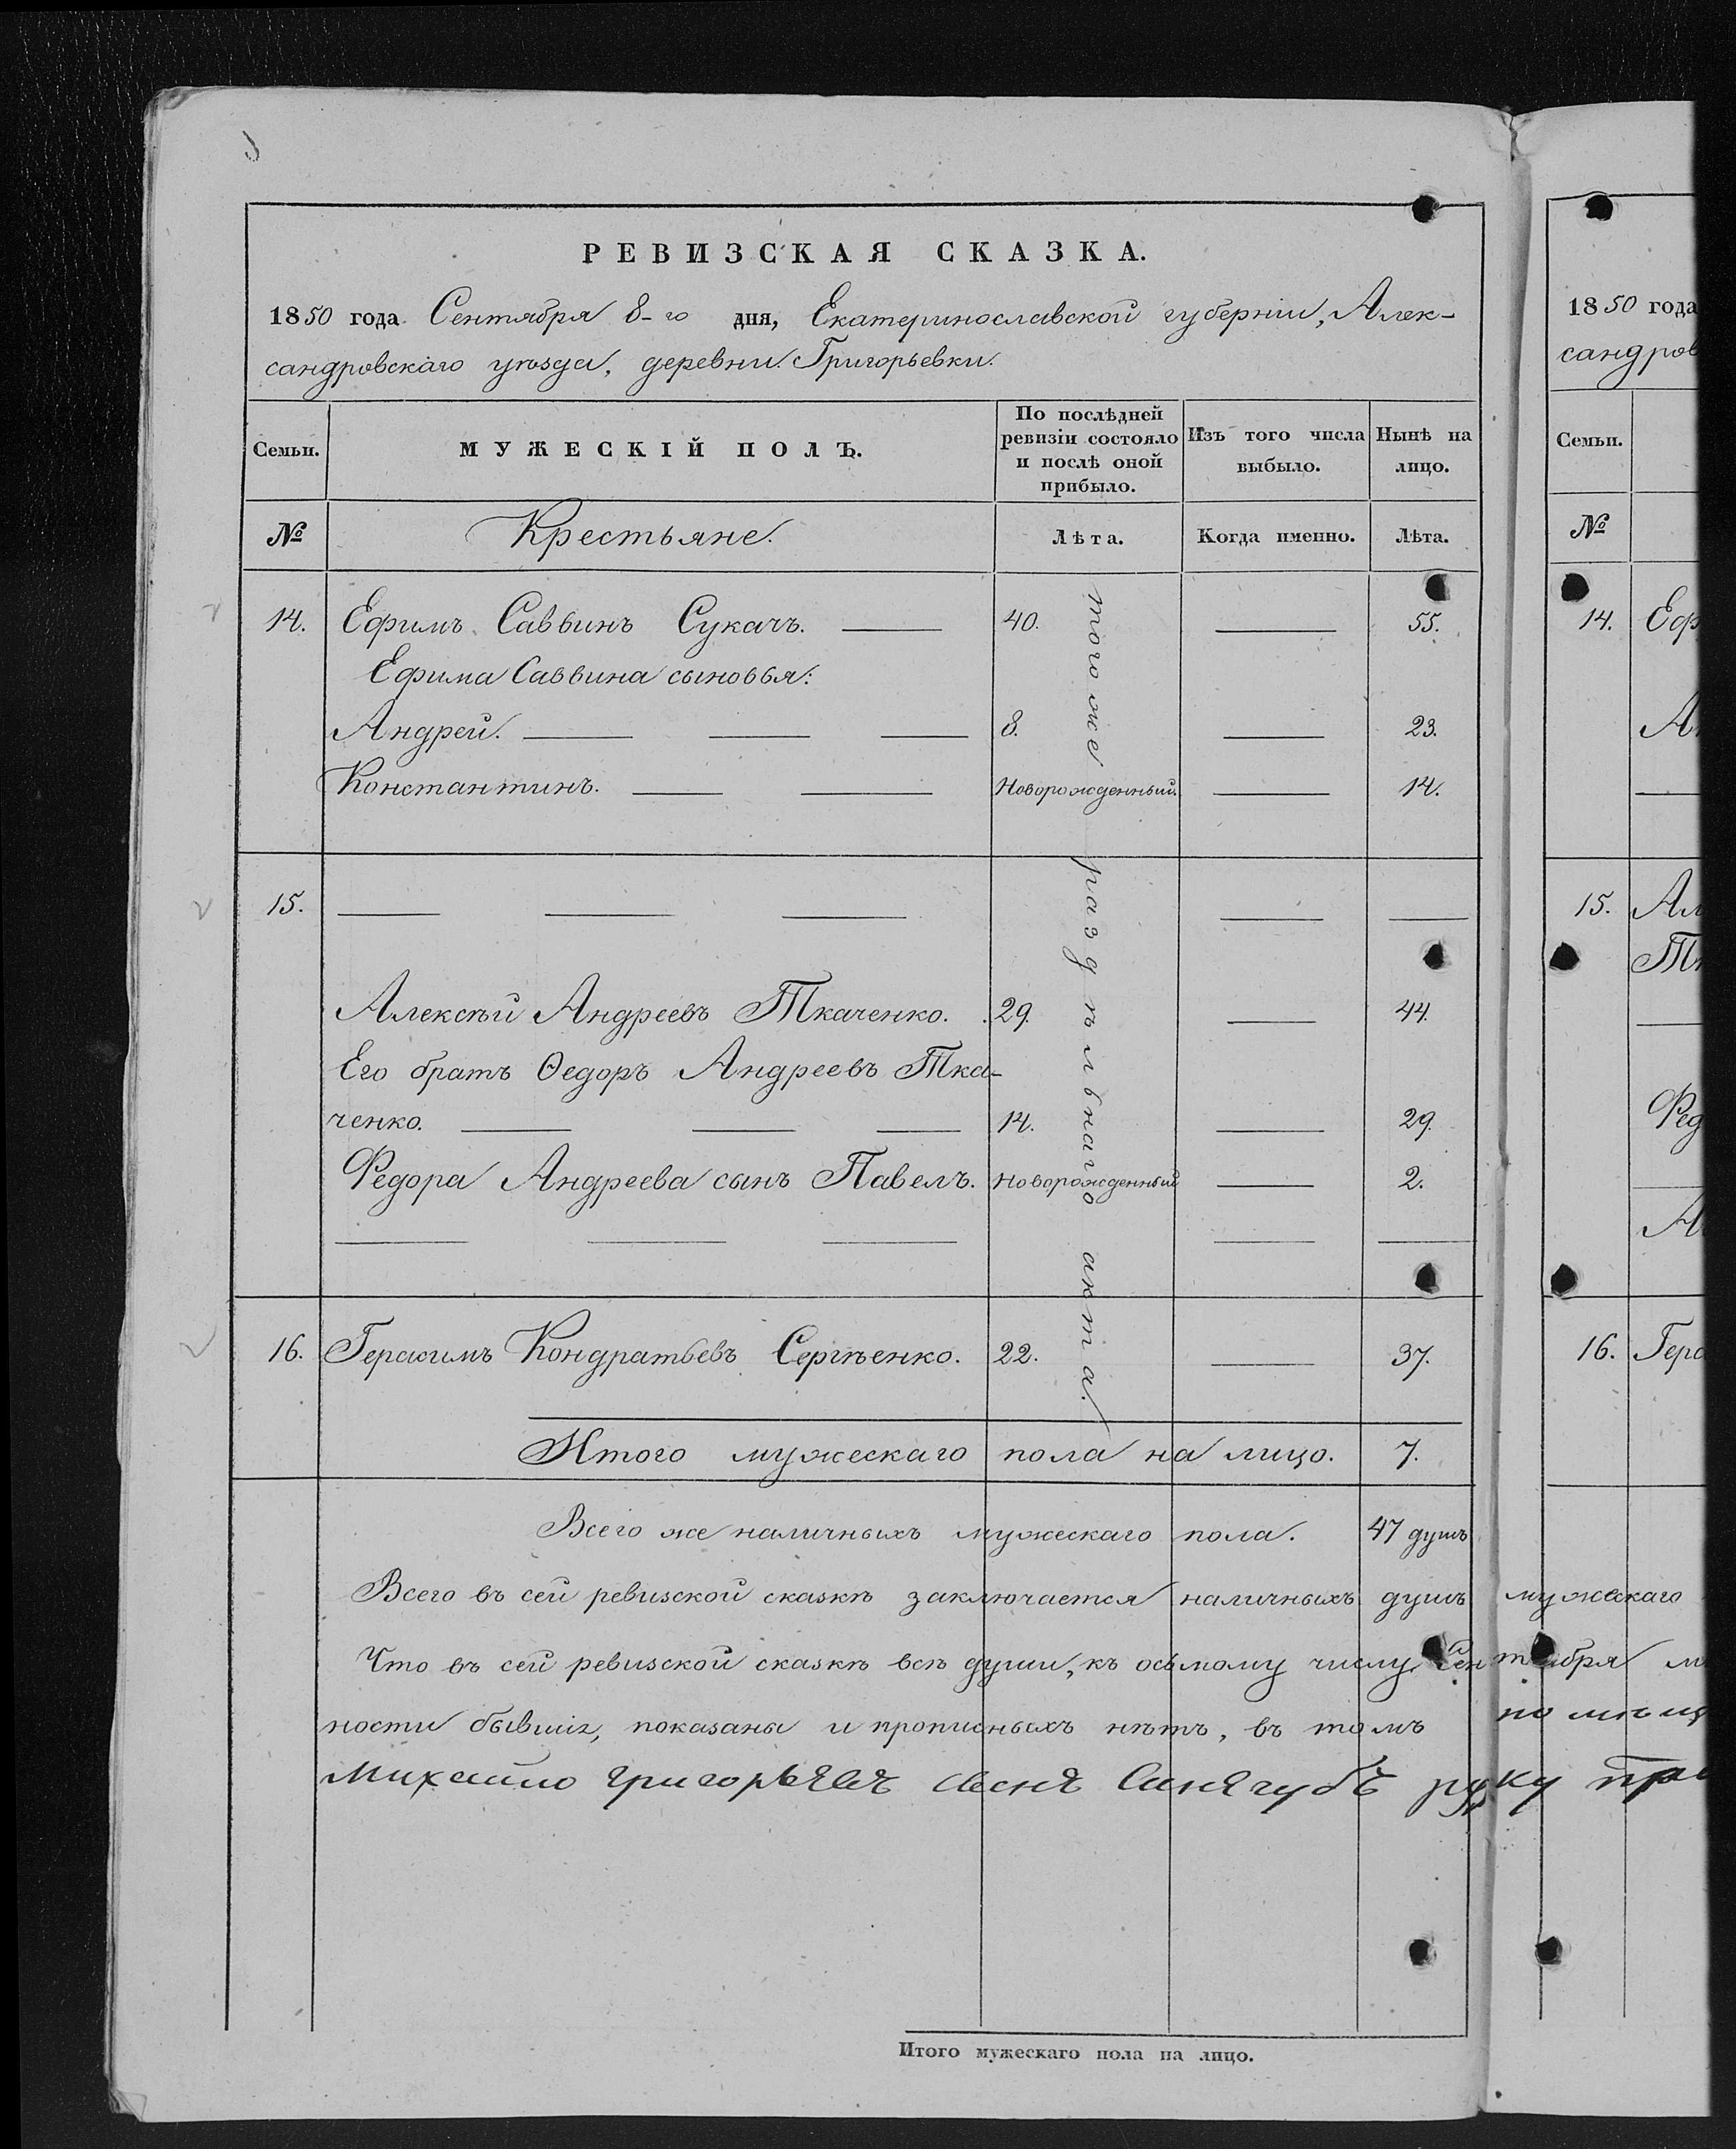 РЕВИЗСКАЯ СКАЗКА.
1850 года Сентября 8-го дня, Екатеринославской губерніи, Алек-
сандровскаго уѣзда, деревни Григорьевки.
Семьи.
МУЖЕСКІЙ ПОЛЪ.
По послѣдней
ревизіи состояло
и послѣ оной
прибыло.
Изъ того числа
выбыло.
Нынѣ на
лицо.
№ Крестьяне. Лѣта. Когда именно. Лѣта.
14. Ефимъ Саввинъ Сукачъ. 40. 55.
Ефима Саввина сыновья:
Андрей. 8. 23.
Константинъ. Новорожденный. 14.
15.
Алексѣй Андреевъ Ткаченко. 29. 44.
Его братъ Ѳедоръ Андреевъ Тка-
ченко. 14. 29.
Федора Андреева сынъ Павелъ. Новорожденный 2.
16. Герасимъ Кондратьевъ Сергѣенко. 22. 37.
того же раздѣльнаго акта.
Итого мужескаго пола на лицо. 7.
Всего же наличныхъ мужескаго пола. 47 душъ
Всего въ сей ревизской сказкѣ заключается наличныхъ душъ мужескаго
Что въ сей ревизской сказкѣ всѣ души, къ осьмому числу Сентября
ности бывшія, показаны и прописныхъ нѣтъ, въ томъ
Михайло Григорьевъ сынъ Синегубъ руку при
Итого мужескаго пола на лицо.
1850 года
сандров
Семьи.
№
14. Еф
Ан
15. Ал
Тк
Фед
16. Гера